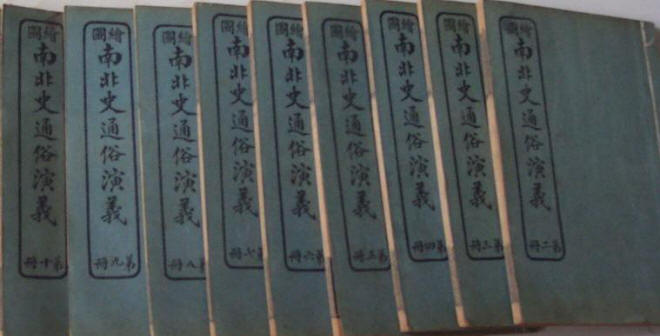 繪圖
南北史通俗演義
第二冊
繪圖
南北史通俗演義
第三冊
繪圖
南北史通俗演義
第四冊
繪圖
南北史通俗演義
第五冊
繪圖
南北史通俗演義
第六冊
繪圖
南北史通俗演義
第七冊
繪圖
南北史通俗演義
第八冊
繪圖
南北史通俗演義
第九冊
繪圖
南北史通俗演義
第十冊